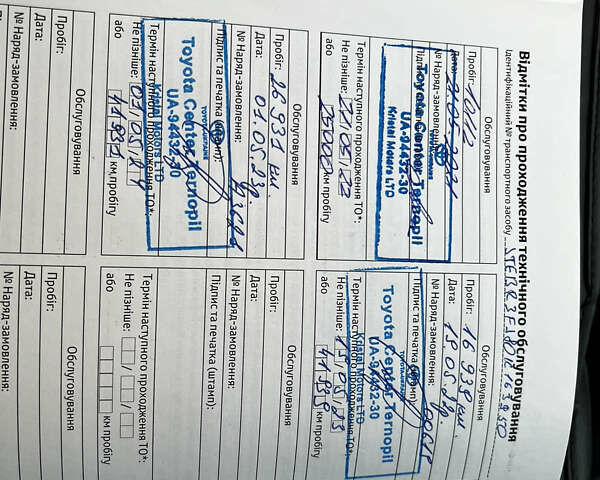 Відмітки про проходження технічного обслуговування
Ідентифікаційний № транспортного засобу
Обслуговування
Пробіг:
Дата:
№ Наряд-замовлення:
Toyota Center Ternopil
UA-94432-30
Kristal Motors LTD
Термін наступного проходження ТО*:
Не пізніше:
або 25000 км пробігу
Обслуговування
Пробіг: 16 938 км.
Дата: 18.05.22.
№ Наряд-замовлення:
Toyota Center Ternopil
UA-94432-30
Kristal Motors LTD
Термін наступного проходження ТО*:
Не пізніше:
або км пробігу
Обслуговування
Пробіг: 26 931 км.
Дата: 01.05.23р.
№ Наряд-замовлення:
Підпис та печатка
Toyota Center Ternopil
UA-94432-30
Kristal Motors LTD
Термін наступного проходження ТО*:
Не пізніше: 01/05/24
або 41931 км пробігу
Обслуговування
Пробіг:
Дата:
№ Наряд-замовлення:
Підпис та печатка (штамп):
Термін наступного проходження ТО*:
Не пізніше:
або км пробігу
Обслуговування
Пробіг:
Дата:
№ Наряд-замовлення:
Обслуговування
Пробіг:
Дата:
№ Наряд-замовлення: